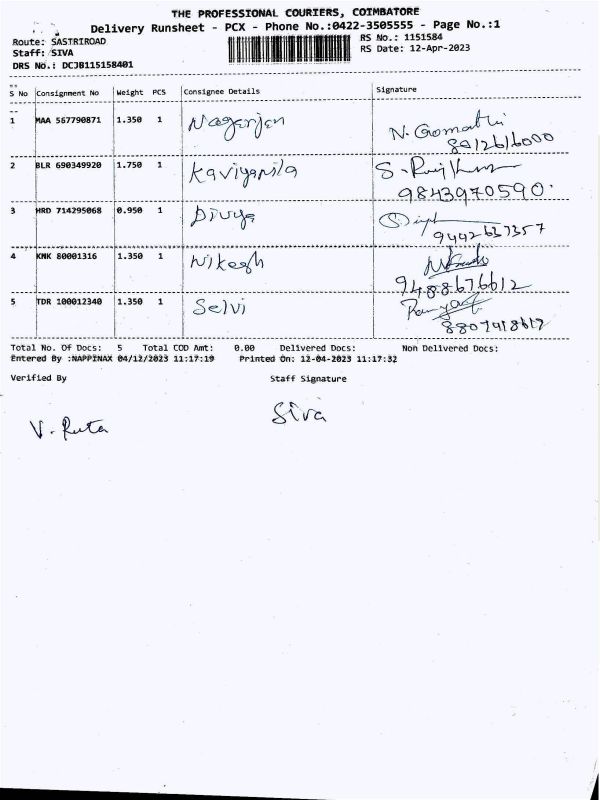 THE PROFESSIONAL COURIERS, COIMBATORE
Delivery Runsheet - PCX - Phone No.:0422-3505555 - Page No.:1
Route: SASTRIROAD
RS No.: 1151584
Staff: SIVA
RS Date: 12-Apr-2023
DRS No.: DCJB115158401
S No Consignment No Weight PCS Consignee Details Signature
1 MAA 567790871 1.350 1 Nagarjen N. Gomathi
8012616000
2 BLR 690349920 1.750 1 Kaviyanila S.
9843970590.
3 HRD 714295068 0.950 1 Divya
9442637357
4 KMK 80001316 1.350 1 Nikesh
9488676612
5 TDR 100012340 1.350 1 Selvi
Total No. Of Docs: 5 Total COD Amt: 0.00 Delivered Docs: Non Delivered Docs:
Entered By :NAPPINAX 04/12/2023 11:17:19 Printed On: 12-04-2023 11:17:32
Verified By Staff Signature
V. Ruta Siva